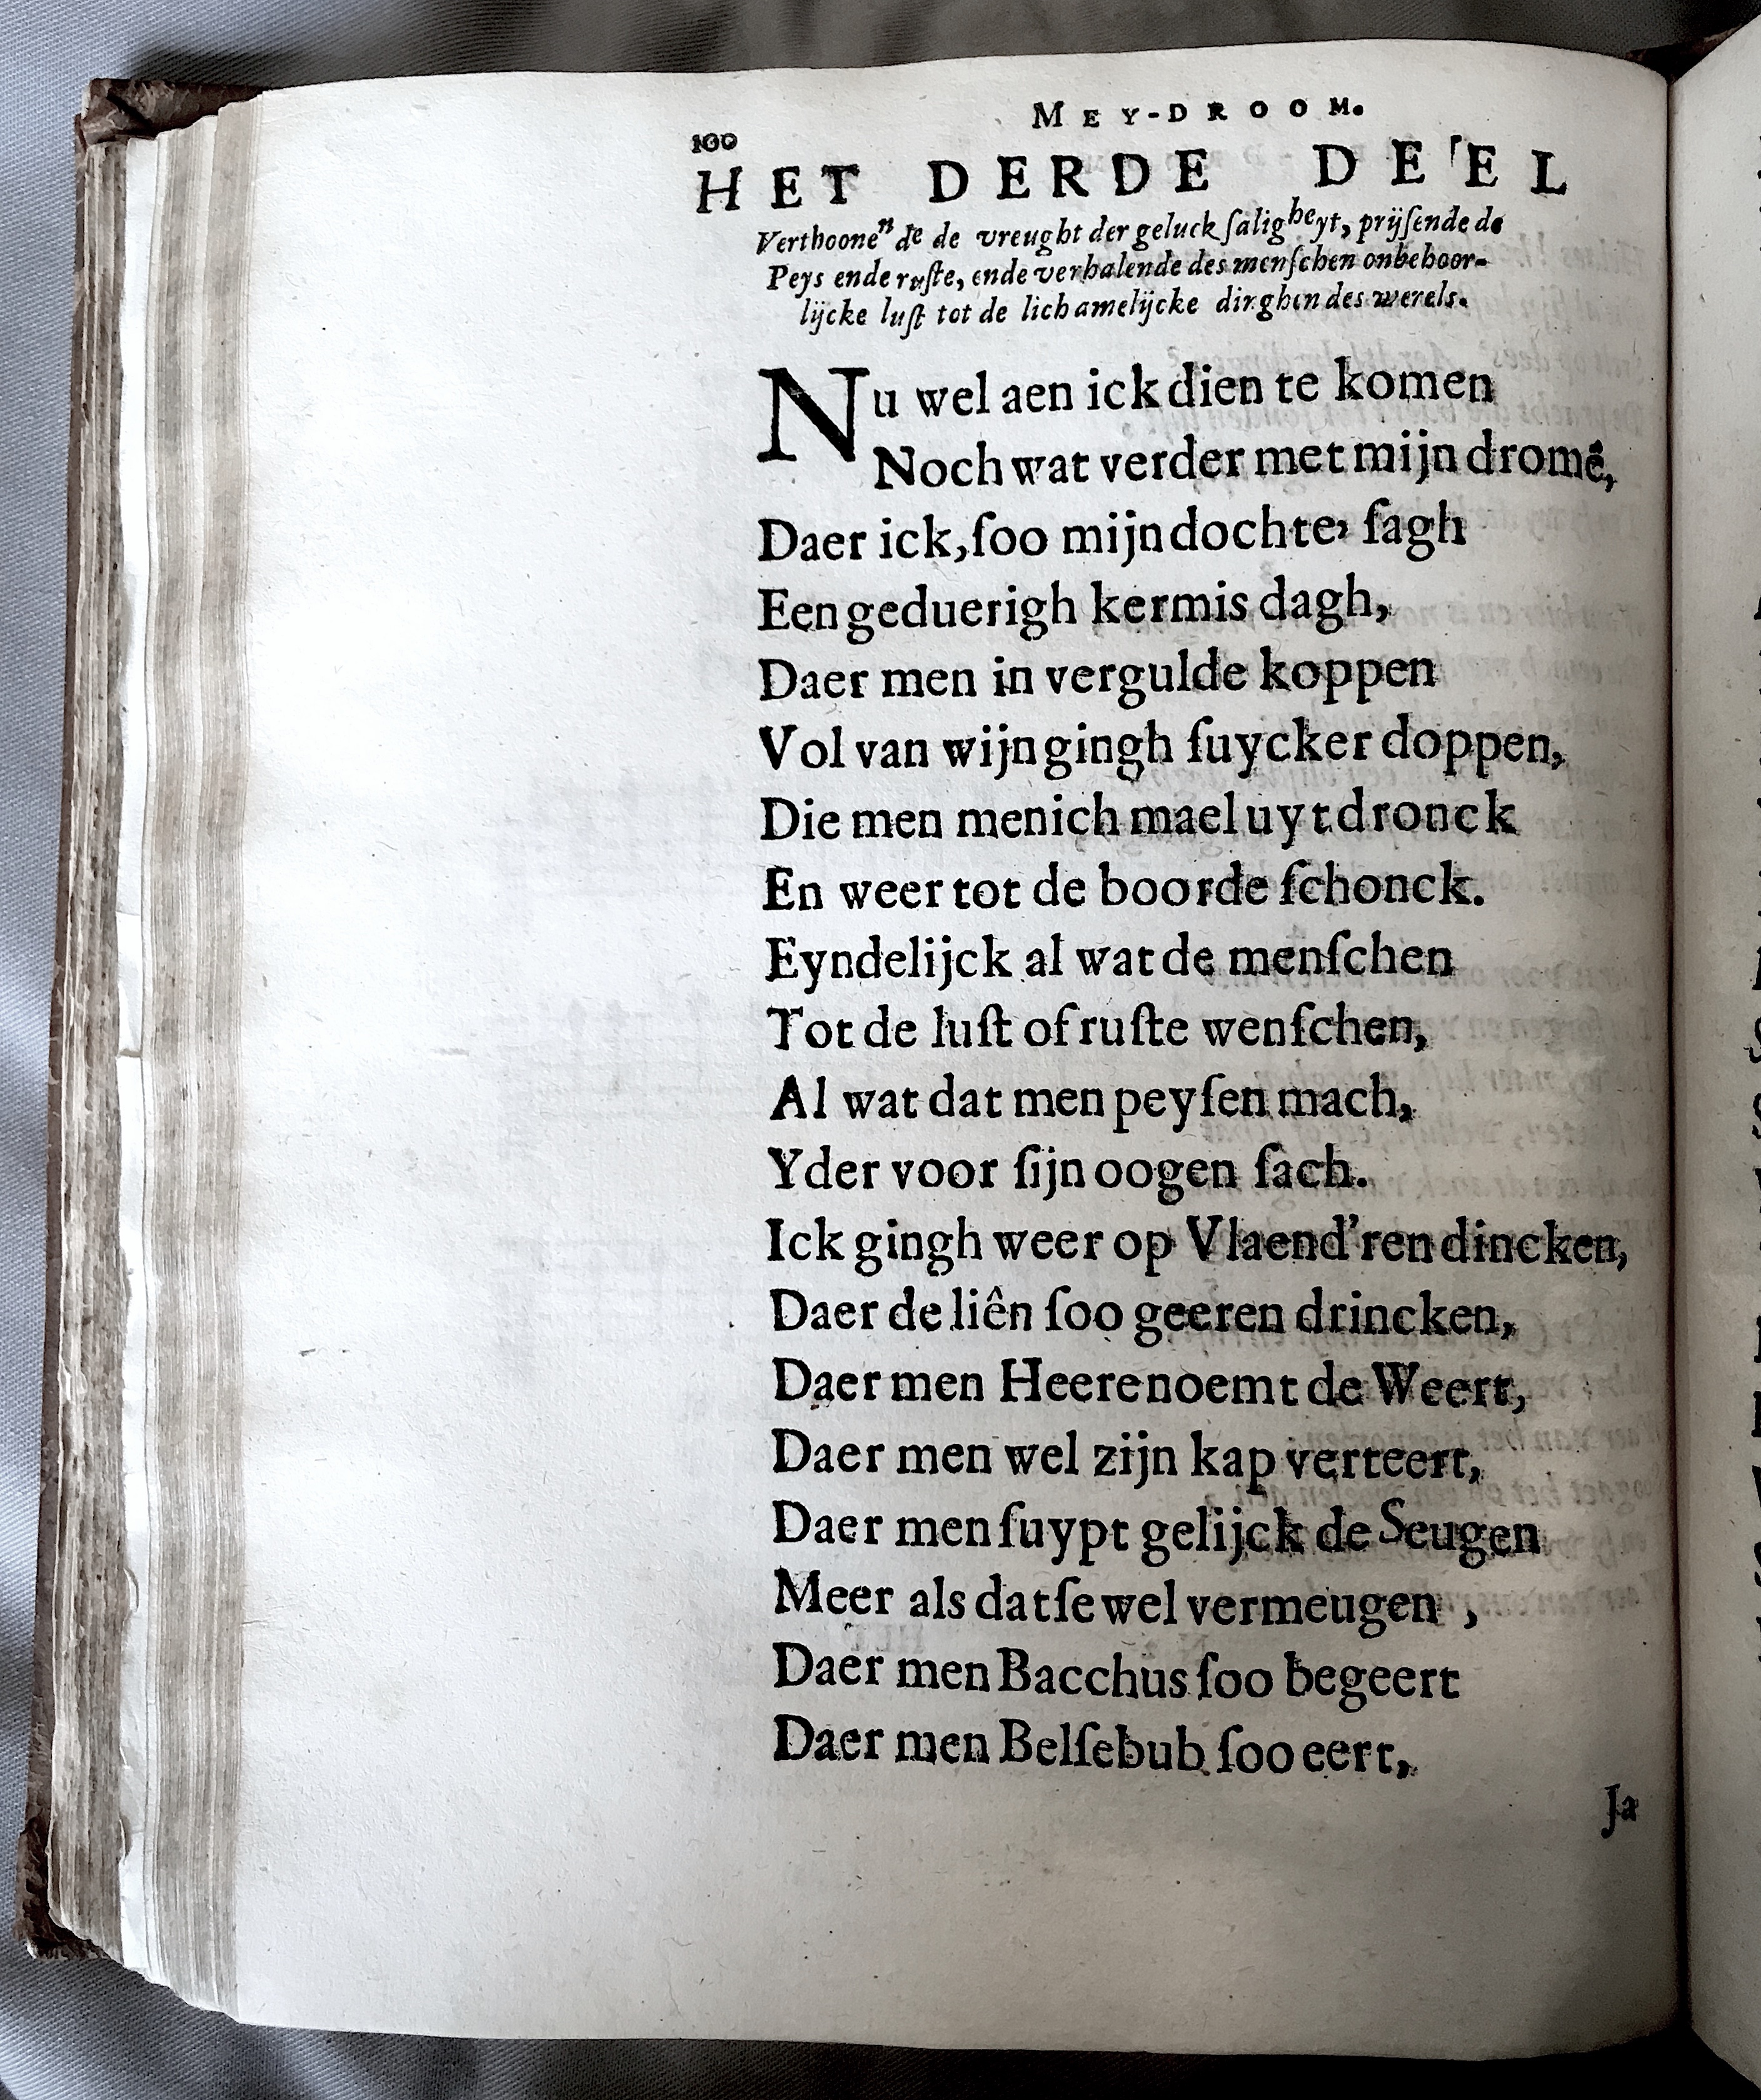 MEY-DROOM.
100
HET DERDE DEEL
Verthoonende de vreught der geluckſaligheyt, prijſende de
Peys ende ruſte, ende verhalende des menſchen onbehoor-
lijcke luſt tot de lichamelijcke dinghen des werels.
Nu wel aen ick dien te komen
Noch wat verder met mijn dromē,
Daer ick, ſoo mijn dochte, ſagh
Een geduerigh kermis dagh,
Daer men in vergulde koppen
Vol van wijn gingh ſuycker doppen,
Die men menich mael uyt dronck
En weer tot de boorde ſchonck.
Eyndelijck al wat de menſchen
Tot de luſt of ruſte wenſchen,
Al wat dat men peyſen mach,
Yder voor ſijn oogen ſach.
Ick gingh weer op Vlaend'ren dincken,
Daer de liên ſoo geeren drincken,
Daer men Heere noemt de Weert,
Daer men wel zijn kap verteert,
Daer men ſuypt gelijck de Seugen
Meer als datſe wel vermeugen,
Daer men Bacchus ſoo begeert
Daer men Belſebub ſoo eert,
Ja